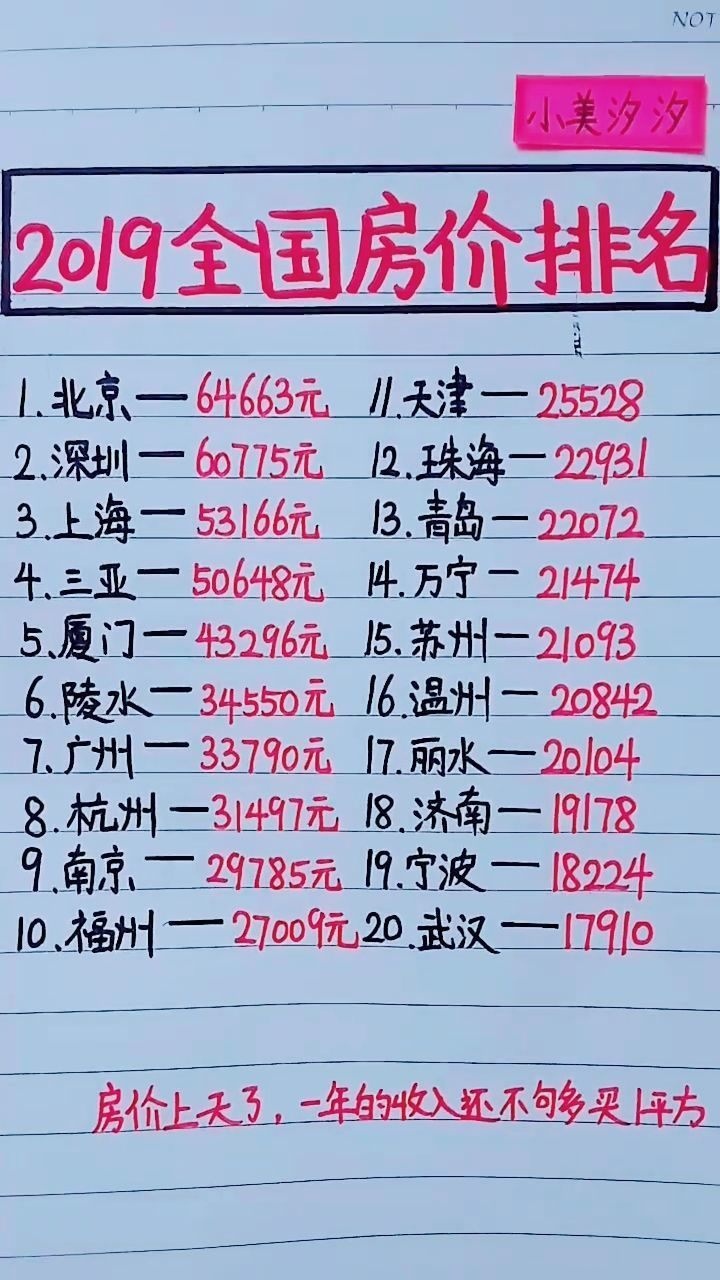 NOT
小美汐汐
2019全国房价排名
1.北京—64663元
2.深圳—60775元
3.上海—53166元
4.三亚—50648元
5.厦门—43296元
6.陵水—34550元
7.广州—33790元
8.杭州—31497元
9.南京—29785元
10.福州—27009元
11.天津—25528
12.珠海—22931
13.青岛—22072
14.万宁—21474
15.苏州—21093
16.温州—20842
17.丽水—20104
18.济南—19178
19.宁波—18224
20.武汉—17910
房价上天了，一年的收入还不够买1平方